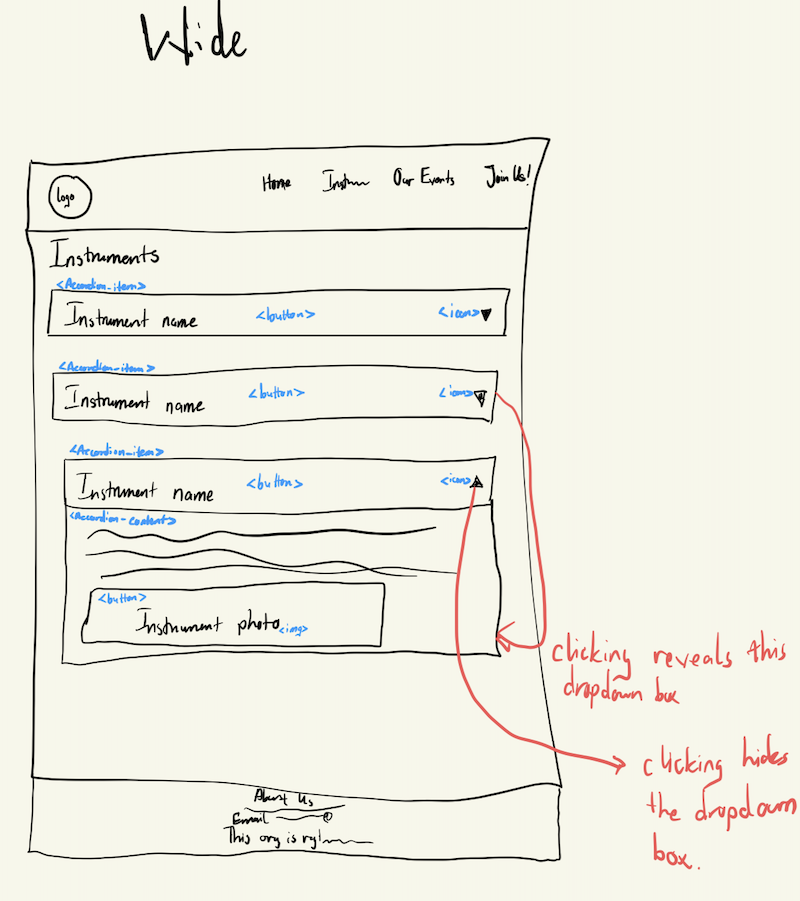 Wide
logo
Home Instrum Our Events Join Us!
Instruments
<Accordion-item>
Instrument name <button> <icon>
<Accordion-item>
Instrument name <button> <icon>
<Accordion-item>
Instrument name <button> <icon>
<Accordion-content>
<button>
Instrument photo <img>
clicking reveals this
dropdown box
clicking hides
the dropdown
box.
About Us
Email
This org is